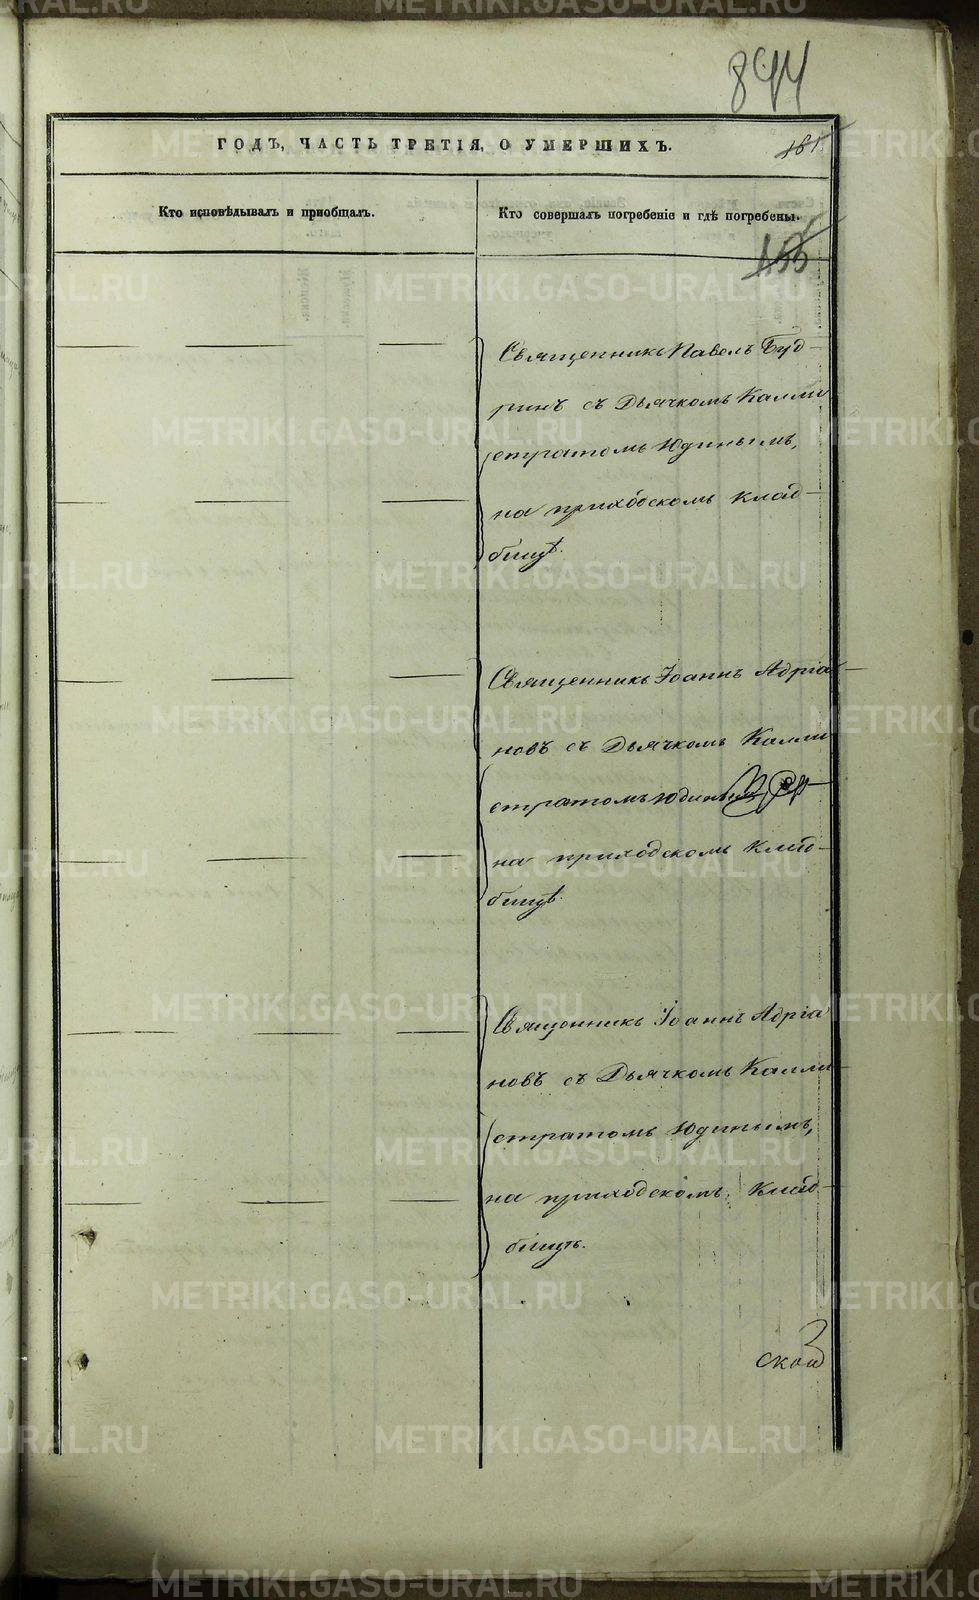 844
ГОДЪ, ЧАСТЬ ТРЕТІЯ, О УМЕРШИХЪ.
181
Кто исповѣдывалъ и пріобщалъ.
Кто совершалъ погребеніе и гдѣ погребены.
155
Священникъ Павелъ Буд-
ринъ съ Дьячкомъ Калли
стратомъ Юдинымъ,
на приходскомъ клад-
бищѣ.
Священникъ Іоаннъ Адріа-
новъ съ Дьячкомъ Калли
стратомъ Юдинымъ
на приходскомъ клад-
бищѣ.
Священникъ Іоаннъ Адріа
новъ съ Дьячкомъ Калли-
стратомъ Юдинымъ,
на приходскомъ клад-
бищѣ.
METRIKI.GASO-URAL.RU